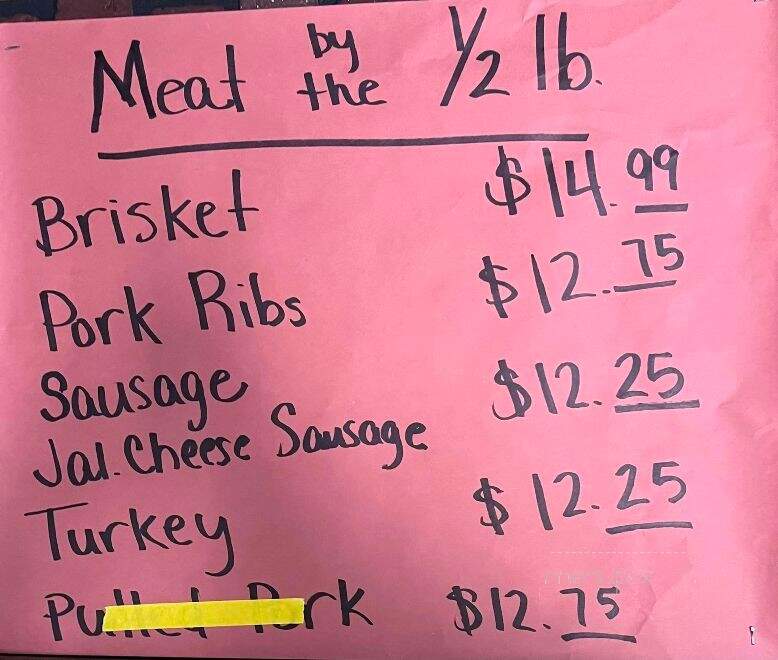 Meat by the 1/2 lb.
Brisket $14.99
Pork Ribs $12.75
Sausage $12.25
Jal. Cheese Sausage
Turkey $12.25
Pulled Pork $12.75